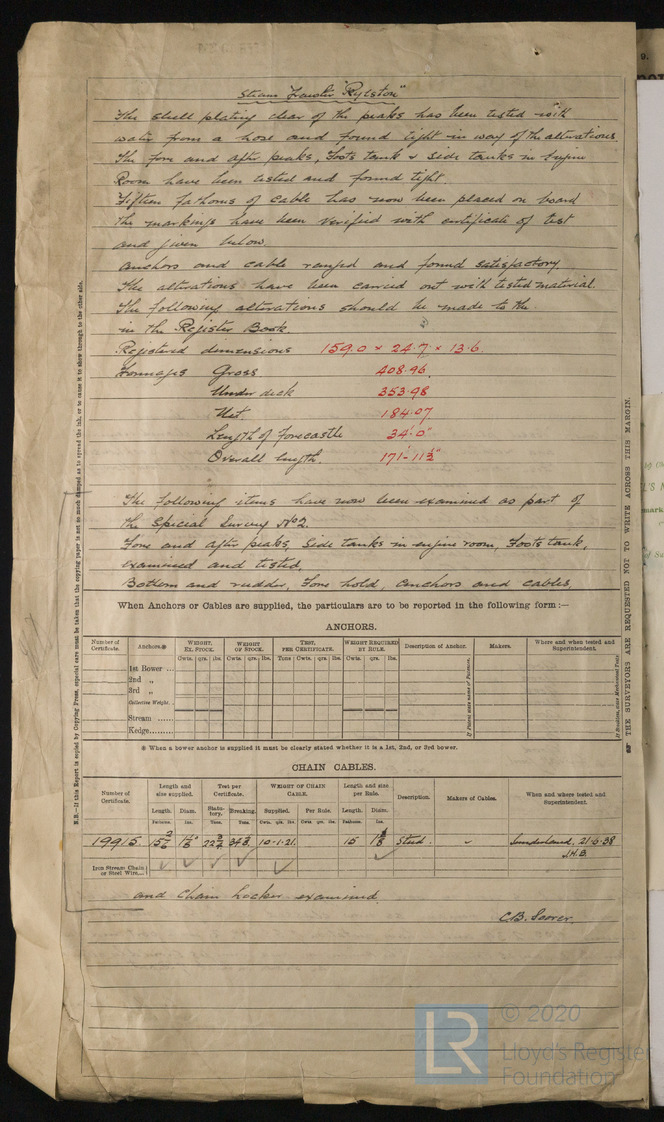 Steam Trawler "Rylston"
The shell plating clear of the peaks has been tested with
water from a hose and found tight in way of the alterations.
The fore and after peaks, Foots tank & side tanks in Engine
Room have been tested and found tight.
Fifteen fathoms of cable has now been placed on board
the markings have been verified with certificate of test
and given below.
Anchors and cable ranged and found satisfactory
The alterations have been carried out with tested material.
The following alterations should be made to the
in the Register Book
Registered dimensions 159.0 × 24.7 × 13.6.
Tonnages Gross 408.96
Under deck 353.98
Net 184.07
Length of Forecastle 34'.0"
Overall length. 171'-11½"
The following items have now been examined as part of
the Special Survey No2.
Fore and after peaks, Side tanks in engine room, Foots tank,
examined and tested,
Bottom and rudder, Fore hold, anchors and cables
When Anchors or Cables are supplied, the particulars are to be reported in the following form :—
ANCHORS.
Number of Certificate. Anchors.※ WEIGHT, EX. STOCK. WEIGHT OF STOCK. TEST, PER CERTIFICATE. WEIGHT REQUIRED BY RULE. Description of Anchor. Makers. Where and when tested and Superintendent.
Cwts. qrs. lbs. Cwts. qrs. lbs. Tons Cwts. qrs. lbs. Cwts. qrs. lbs.
1st Bower ...
2nd „
3rd „
Collective Weight.
Stream ......
Kedge.........
※ When a bower anchor is supplied it must be clearly stated whether it is a 1st, 2nd, or 3rd bower.
CHAIN CABLES.
Number of Certificate. Length and size supplied. Test per Certificate. WEIGHT OF CHAIN CABLE. Length and size per Rule. Description. Makers of Cables. When and where tested and Superintendent.
Length. Diam. Statutory. Breaking. Supplied. Per Rule. Length. Diam.
Fathoms. Ins. Tons. Tons. Cwts. qrs. lbs. Cwts. qrs. lbs. Fathoms. Ins.
19915 10-1-21. 15 Stud. " Sunderland. 21-6-38
J.H.B.
Iron Stream Chain or Steel Wire...
and chain locker examined.
N.B.—If this Report is copied by Copying Press, especial care must be taken that the copying paper is not so much damped as to spread the ink, or to cause it to show through to the other side.
THE SURVEYORS ARE REQUESTED NOT TO WRITE ACROSS THIS MARGIN.
LR
© 2020
Lloyd's Register
Foundation